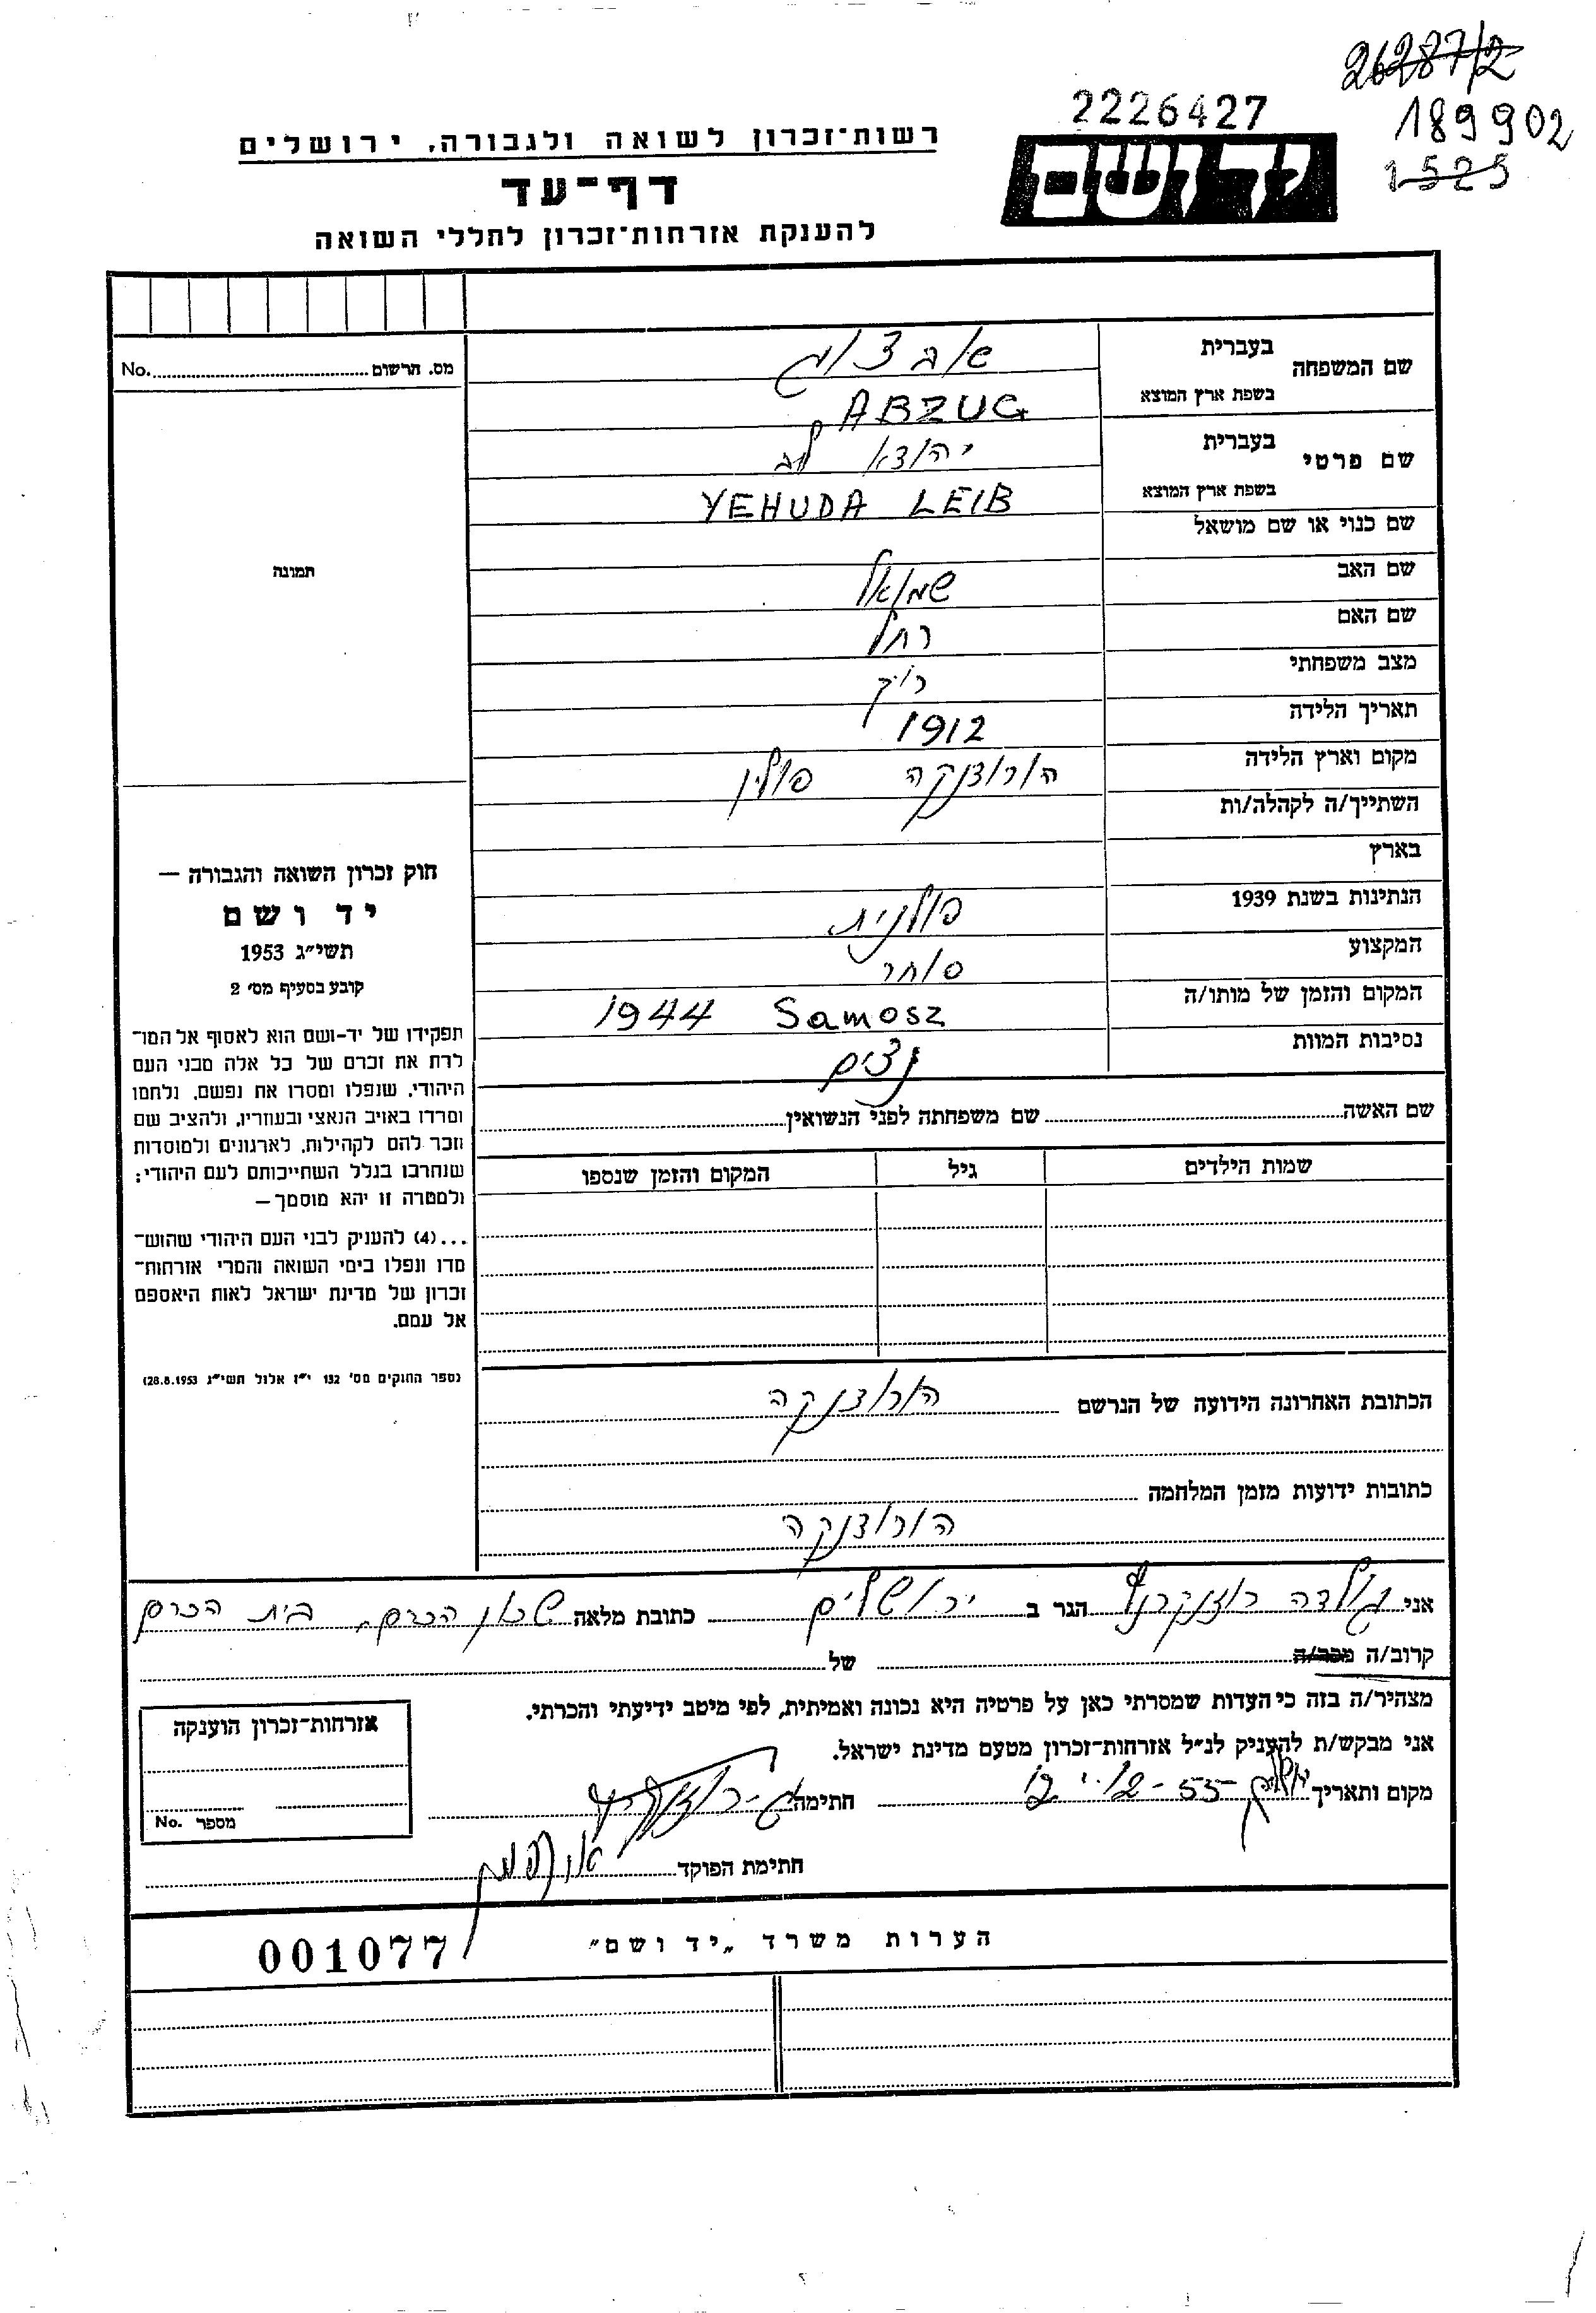 26287/2
2226427
189902
1525
יד ושם
רשות־זכרון לשואה ולגבורה, ירושלים
דף־עד
להענקת אזרחות־זכרון לחללי השואה
מס. הרשום No.
שם המשפחה
בעברית
אבצוג
בשפת ארץ המוצא
ABZUG
שם פרטי
בעברית
יהודא לב
בשפת ארץ המוצא
YEHUDA LEIB
שם כנוי או שם מושאל
שם האב שמואל
שם האם רחל
מצב משפחתי רוק
תאריך הלידה 1912
מקום וארץ הלידה הורודנקה פולין
השתייך/ה לקהלה/ות
בארץ
הנתינות בשנת 1939 פולנית
המקצוע סוחר
המקום והזמן של מותו/ה Samosz 1944
נסיבות המוות
תמונה
חוק זכרון השואה והגבורה –
יד ושם
תשי״ג 1953
קובע בסעיף מס׳ 2
תפקידו של יד-ושם הוא לאסוף אל המו־
לדת את זכרם של כל אלה מבני העם
היהודי, שנפלו ומסרו את נפשם, נלחמו
ומרדו באויב הנאצי ובעוזריו, ולהציב שם
וזכר להם לקהילות, לארגונים ולמוסדות
שנחרבו בגלל השתייכותם לעם היהודי;
ולמטרה זו יהא מוסמך –
...(4) להעניק לבני העם היהודי שהוש־
מדו ונפלו בימי השואה והמרי אזרחות־
זכרון של מדינת ישראל לאות היאספם
אל עמם.
(ספר החוקים מס׳ 132 י״ז אלול תשי״ג 28.8.1953)
שם האשה שם משפחתה לפני הנשואין
שמות הילדים גיל המקום והזמן שנספו
הכתובת האחרונה הידועה של הנרשם הורודנקה
כתובות ידועות מזמן המלחמה
הורודנקה
אני גולדה רוזנקרנץ הגר ב ירושלים כתובת מלאה שכון הכרם, בית הכרם
קרוב/ה מכר/ה של
מצהיר/ה בזה כי העדות שמסרתי כאן על פרטיה היא נכונה ואמיתית, לפי מיטב ידיעתי והכרתי.
אני מבקש/ת להעניק לנ״ל אזרחות־זכרון מטעם מדינת ישראל.
מקום ותאריך ירושלים 12.12-55 חתימה
חתימת הפוקד
אזרחות־זכרון הוענקה
מספר No.
הערות משרד „יד ושם״
001077